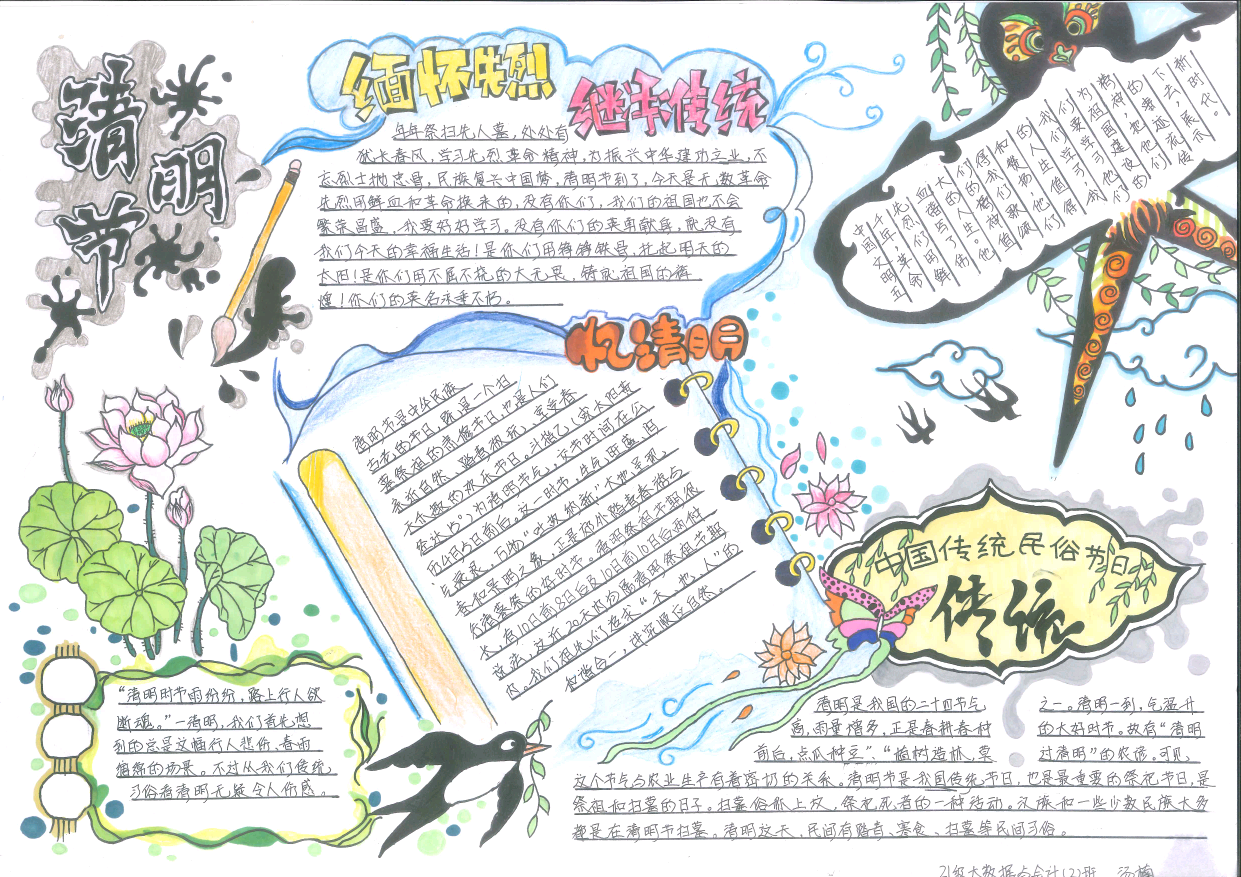 清明节
缅怀先烈
继承传统
年年祭扫先人墓，处处有
犹长春风，学习先烈革命精神，为振兴中华建功立业，不
忘烈士抛忠骨，民族复兴中国梦，清明节到了，今天是无数革命
先烈用鲜血和革命换来的，没有你们，我们的祖国也不会
繁荣昌盛，我要好好学习。没有你们的英勇献身，就没有
我们今天的幸福生活！是你们用铮铮铁骨，托起明天的
太阳！是你们用不屈不挠的大无畏，铸就祖国的辉
煌！你们的英名永垂不朽。
忆清明
清明节是中华民族
古老的节日，既是一个扫
墓祭祖的肃穆节日，也是人们
亲近自然、踏青游玩、享受春
天乐趣的欢乐节日。斗指乙（或太阳黄
经达15°）为清明节气，交节时间在公
历4月5日前后。这一时节，生气旺盛、阴
气衰退，万物“吐故纳新”，大地呈现
春和景明之象，正是郊外踏青春游与
行清墓祭的好时节。清明祭祖节期很
长，有10日前8日后及10日前10日后两种
说法，这近20天内均属清明祭祖节期
内。我们祖先们追求“天、地、人”的
和谐合一，讲究顺应自然。
中国传统民俗节日
传统
“清明时节雨纷纷，路上行人欲
断魂。”一清明，我们首先想
到的总是这幅行人悲伤、春雨
绵绵的场景。不过从我们传统
习俗看清明无疑令人伤感。
清明是我国的二十四节气
之一。清明一到，气温升
高，雨量增多，正是春耕春种
的大好时节。故有“清明
前后，点瓜种豆”、“植树造林，莫
过清明”的农谚。可见，
这个节气与农业生产有着密切的关系。清明节是我国传统节日，也是最重要的祭祀节日，是
祭祖和扫墓的日子。扫墓俗称上坟，祭祀死者的一种活动。汉族和一些少数民族大多
都是在清明节扫墓。清明这天，民间有踏青、寒食、扫墓等民间习俗。
21级大数据与会计(2)班 汤楠